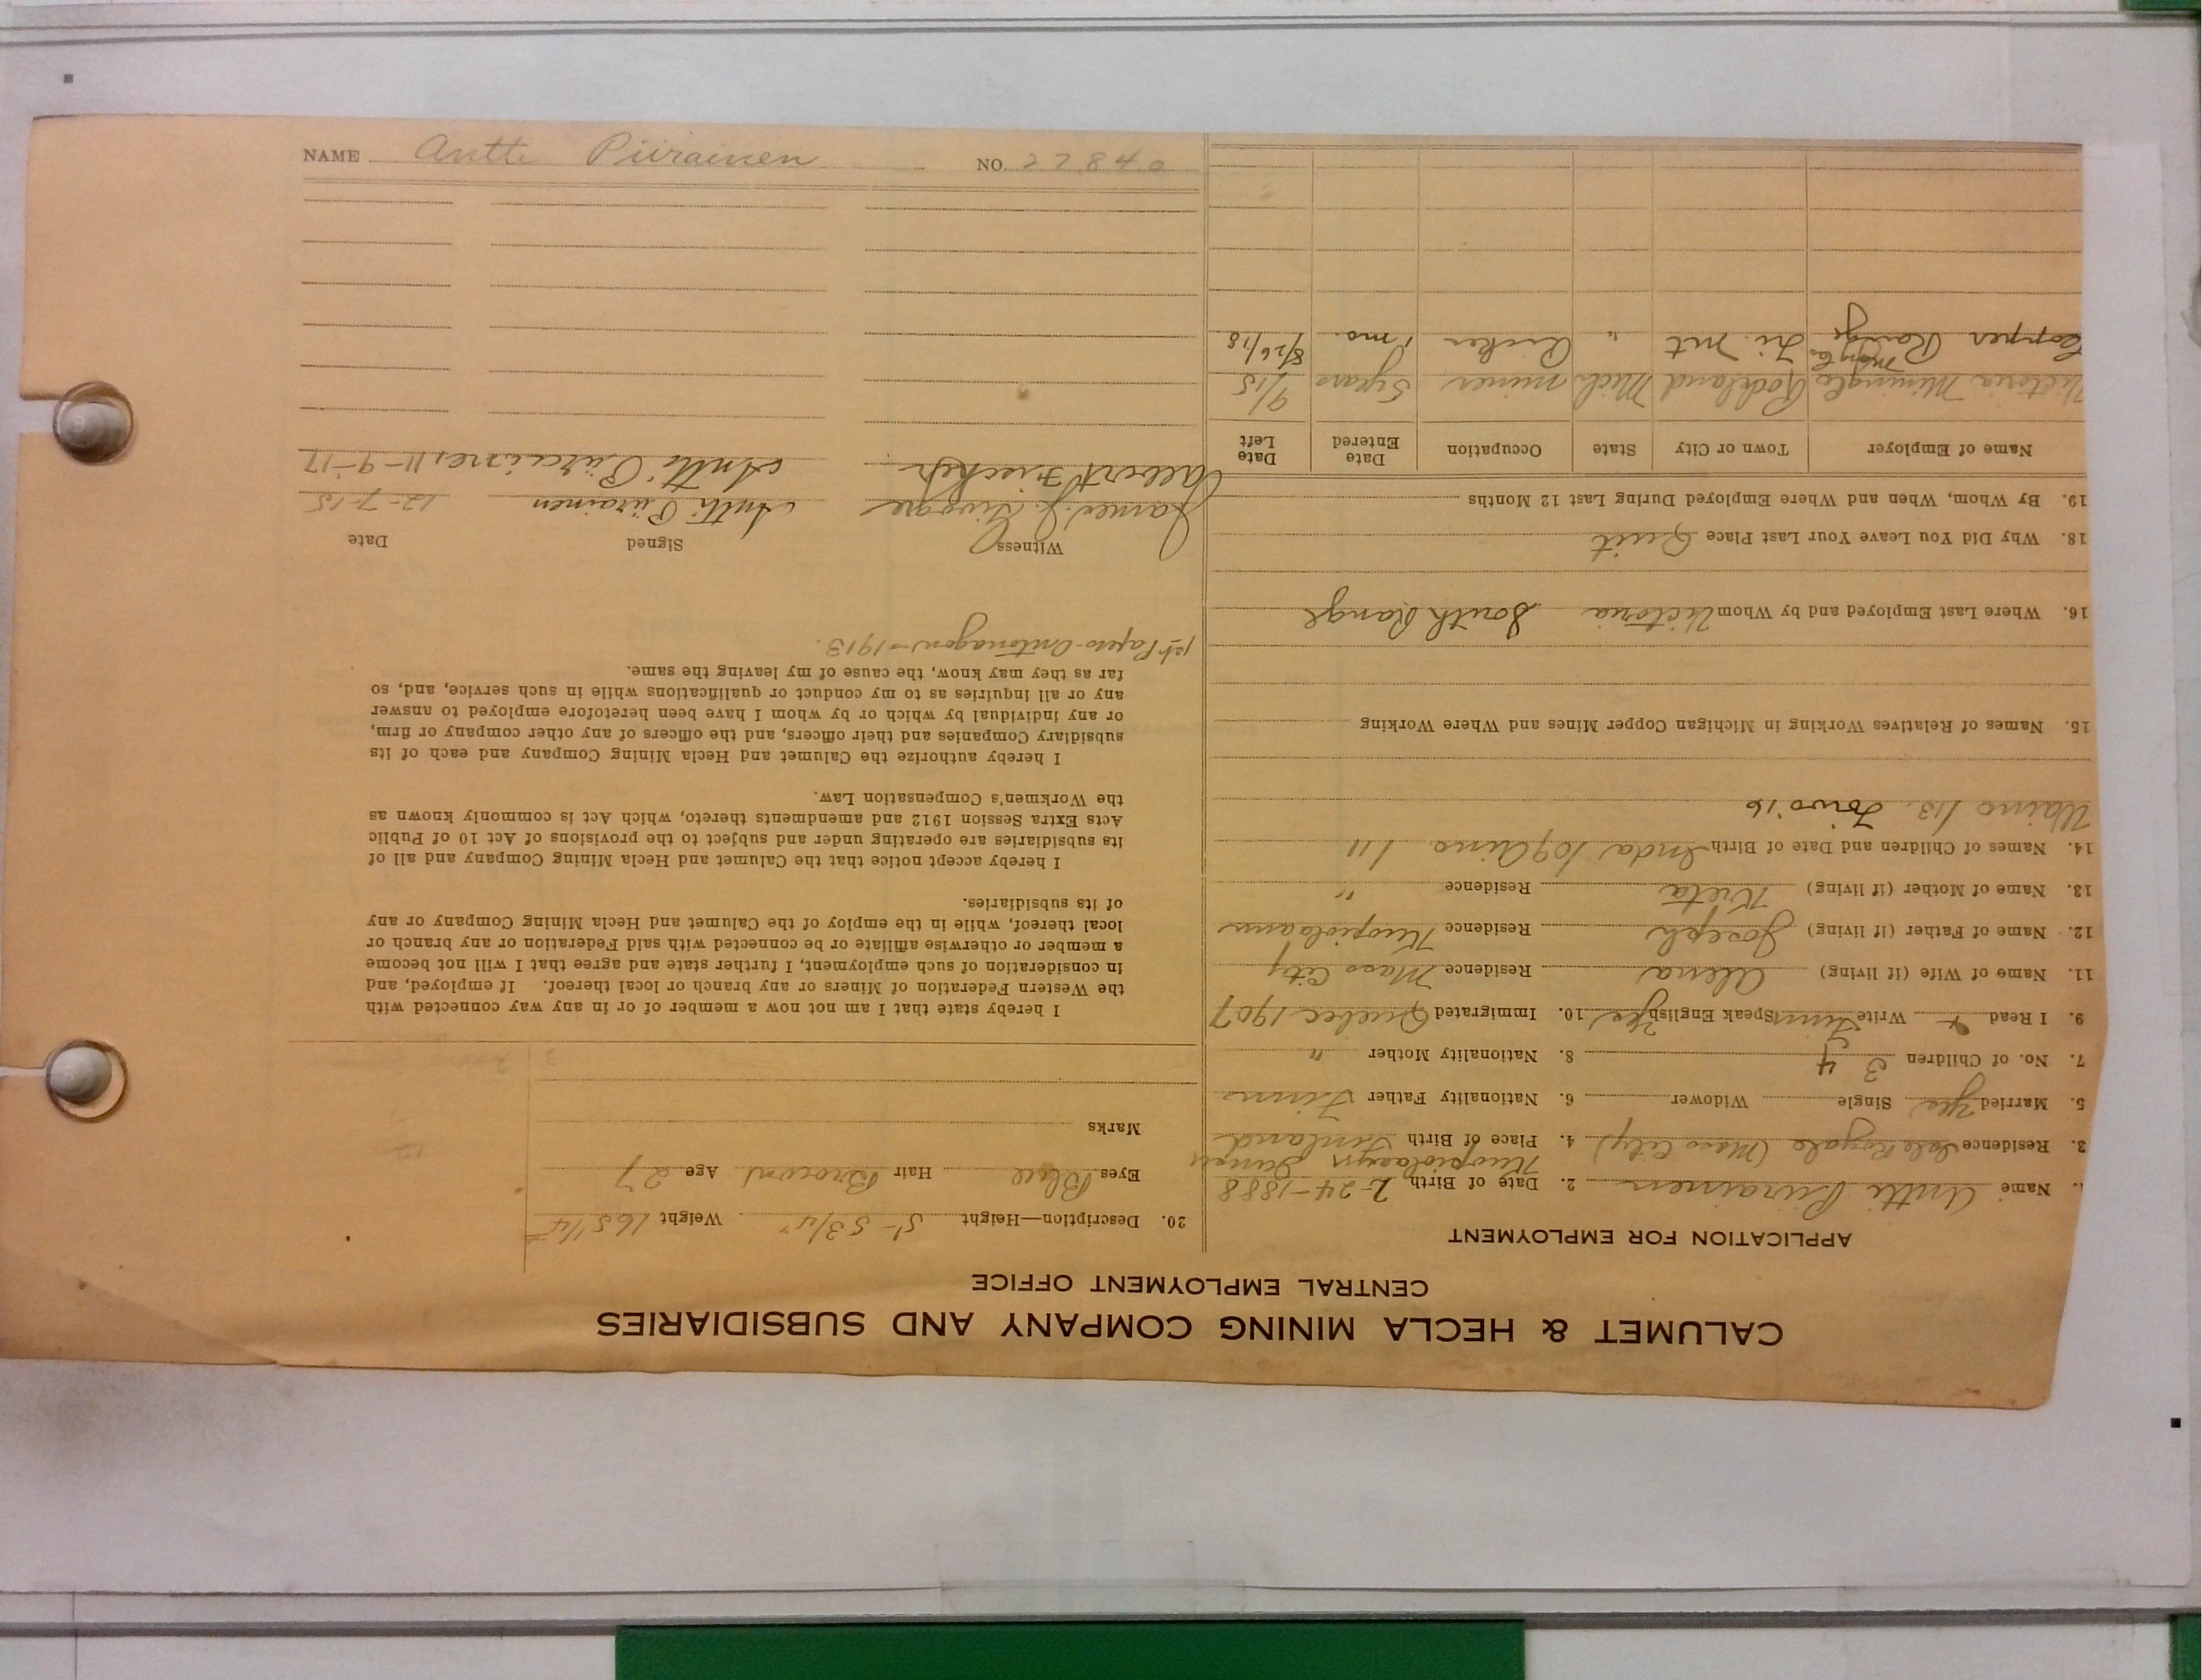 CALUMET & HECLA MINING COMPANY AND SUBSIDIARIES
CENTRAL EMPLOYMENT OFFICE
APPLICATION FOR EMPLOYMENT
1. Name Antti Piirainen 2. Date of Birth 2-24-1888
3. Residence Isle Royale (Mass City) 4. Place of Birth Finland
5. Married Yes Single Widower 6. Nationality Father Finns
7. No. of Children 3 4 8. Nationality Mother "
9. I Read & Write Finn Speak English Yes 10. Immigrated Quebec 1907
11. Name of Wife (if living) Alena Residence Mass City
12. Name of Father (if living) Joseph Residence
13. Name of Mother (if living) Kreta Residence "
14. Names of Children and Date of Birth Inda /09 Aino /11
Waino /13. Toivo '16
15. Names of Relatives Working in Michigan Copper Mines and Where Working
16. Where Last Employed and by Whom Victoria South Range
18. Why Did You Leave Your Last Place Quit
19. By Whom, When and Where Employed During Last 12 Months
Name of Employer Town or City State Occupation Date Entered Date Left
Victoria Mining Co Rockland Mich miner 5 years 9/15
Copper Range Tri. Mt " 1 mo. 8/26/18
20. Description—Height 5'-5 3/4" Weight 165 1/4#
Eyes Blue Hair Brown Age 27
Marks
I hereby state that I am not now a member of or in any way connected with
the Western Federation of Miners or any branch or local thereof. If employed, and
in consideration of such employment, I further state and agree that I will not become
a member or otherwise affiliate or be connected with said Federation or any branch or
local thereof, while in the employ of the Calumet and Hecla Mining Company or any
of its subsidiaries.
I hereby accept notice that the Calumet and Hecla Mining Company and all of
its subsidiaries are operating under and subject to the provisions of Act 10 of Public
Acts Extra Session 1912 and amendments thereto, which Act is commonly known as
the Workmen's Compensation Law.
I hereby authorize the Calumet and Hecla Mining Company and each of its
subsidiary Companies and their officers, and the officers of any other company or firm,
or any individual by which or by whom I have been heretofore employed to answer
any or all inquiries as to my conduct or qualifications while in such service, and, so
far as they may know, the cause of my leaving the same.
1st Papers Ontonagon - 1913.
Witness Signed Date
James J. Antti Piirainen 12-7-15
Albert Antti Piirainen 11-9-17
NAME Antti Piirainen NO. 27840